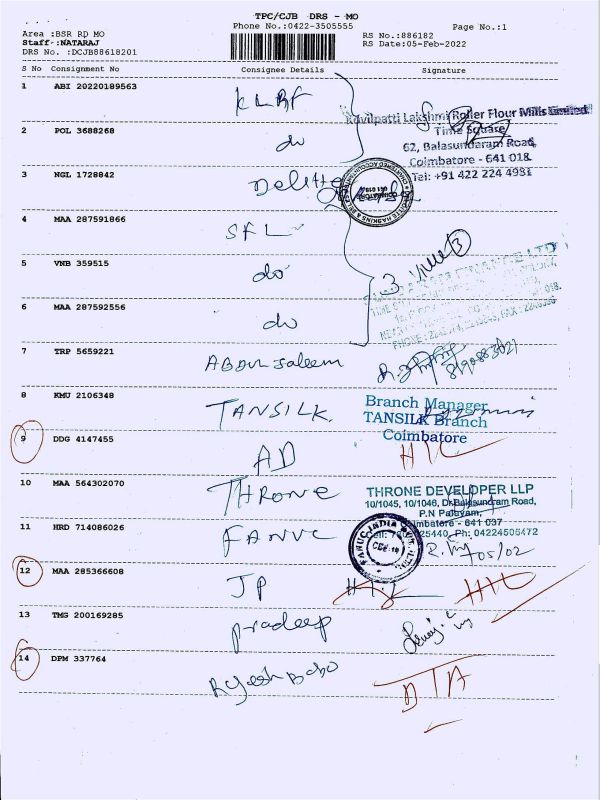 TPC/CJB DRS - MO
Phone No.:0422-3505555
Page No.:1
Area :BSR RD MO
Staff :NATARAJ
DRS No. :DCJB88618201
RS No.:886182
RS Date:05-Feb-2022
S No Consignment No Consignee Details Signature
1 ABI 20220189563 KLRF
Kovilpatti Lakshmi Roller Flour Mills Limited
Time Square
2 POL 3688268 do
62, Balasundaram Road,
Coimbatore - 641 018.
3 NGL 1728842 Deloitte
Tel: +91 422 224 4981
4 MAA 287591866 SFL
3
5 VNB 359515 do
3
6 MAA 287592556 do
7 TRP 5659221 ABDUL Saleem
8 KMU 2106348 TANSILK
Branch Manager
TANSILK Branch
Coimbatore
9 DDG 4147455 AD
10 MAA 564302070 THRONE
THRONE DEVELOPER LLP
10/1045, 10/1046, Dr.Balasundram Road,
P.N Palayam,
Coimbatore - 641 037
Ph: 04224506472
11 HRD 714086026 FANUC
FANUC INDIA
05/02
12 MAA 285366608 JP
13 TMG 200169285 pradeep
14 DPM 337764 Rajesh Babo